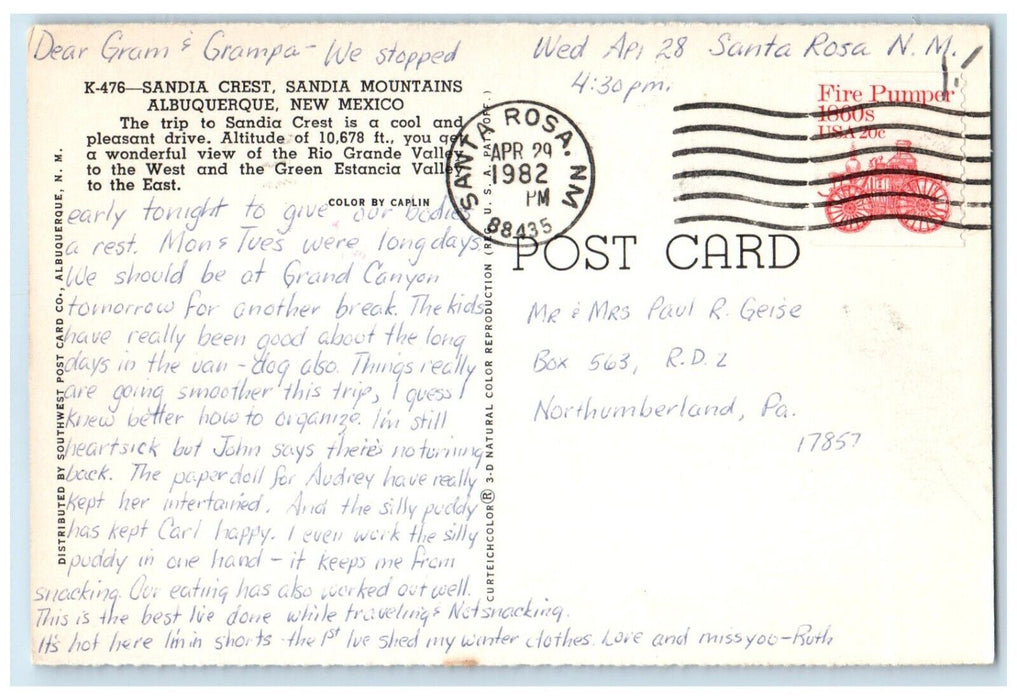 Dear Gram & Grampa - We stopped
Wed Apr 28 Santa Rosa N.M.
4:30 pm.
K-476—SANDIA CREST, SANDIA MOUNTAINS
ALBUQUERQUE, NEW MEXICO
The trip to Sandia Crest is a cool and
pleasant drive. Altitude of 10,678 ft., you get
a wonderful view of the Rio Grande Valley
to the West and the Green Estancia Valley
to the East.
COLOR BY CAPLIN
early tonight to give our bodies
a rest. Mon & Tues were long days
We should be at Grand Canyon
tomorrow for another break. The kids
have really been good about the long
days in the van - dog also. Things really
are going smoother this trip, I guess I
knew better how to organize. I'm still
heartsick but John says there's no turning
back. The paper doll for Audrey have really
kept her intertained. And the silly puddy
has kept Carl happy. I even work the silly
puddy in one hand - it keeps me from
snacking. Our eating has also worked out well.
This is the best I've done while traveling & Not snacking.
It's hot here I'm in shorts - the 1st I've shed my winter clothes. Love and miss you - Ruth
DISTRIBUTED BY SOUTHWEST POST CARD CO., ALBUQUERQUE, N. M.
CURTEICHCOLOR® 3-D NATURAL COLOR REPRODUCTION (REG. U. S. A. PAT. OFF.)
SANTA ROSA. NM
APR 29
1982
PM
88435
Fire Pumper
1860s
USA 20c
POST CARD
Mr & Mrs Paul R. Geise
Box 563, R.D. 2
Northumberland, Pa.
17857